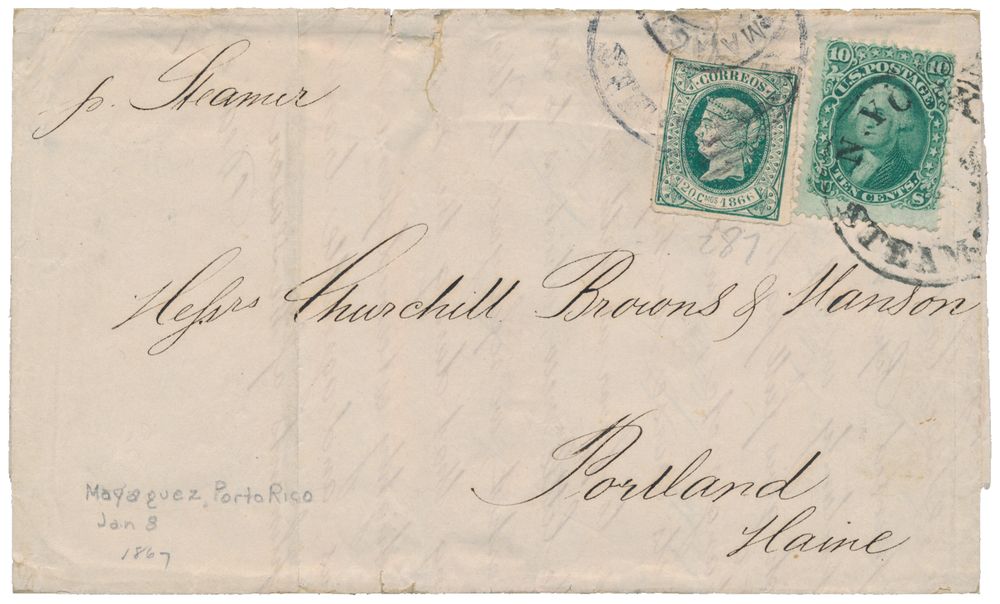 p. Steamer
CORREOS
20. CMOS 1866
10 10
U.S. POSTAGE
TEN CENTS.
U S
N. YO
STEAM
287
Messrs Churchill Browns & Manson
Portland
Maine
Mayaguez, Porto Rico
Jan 8
1867